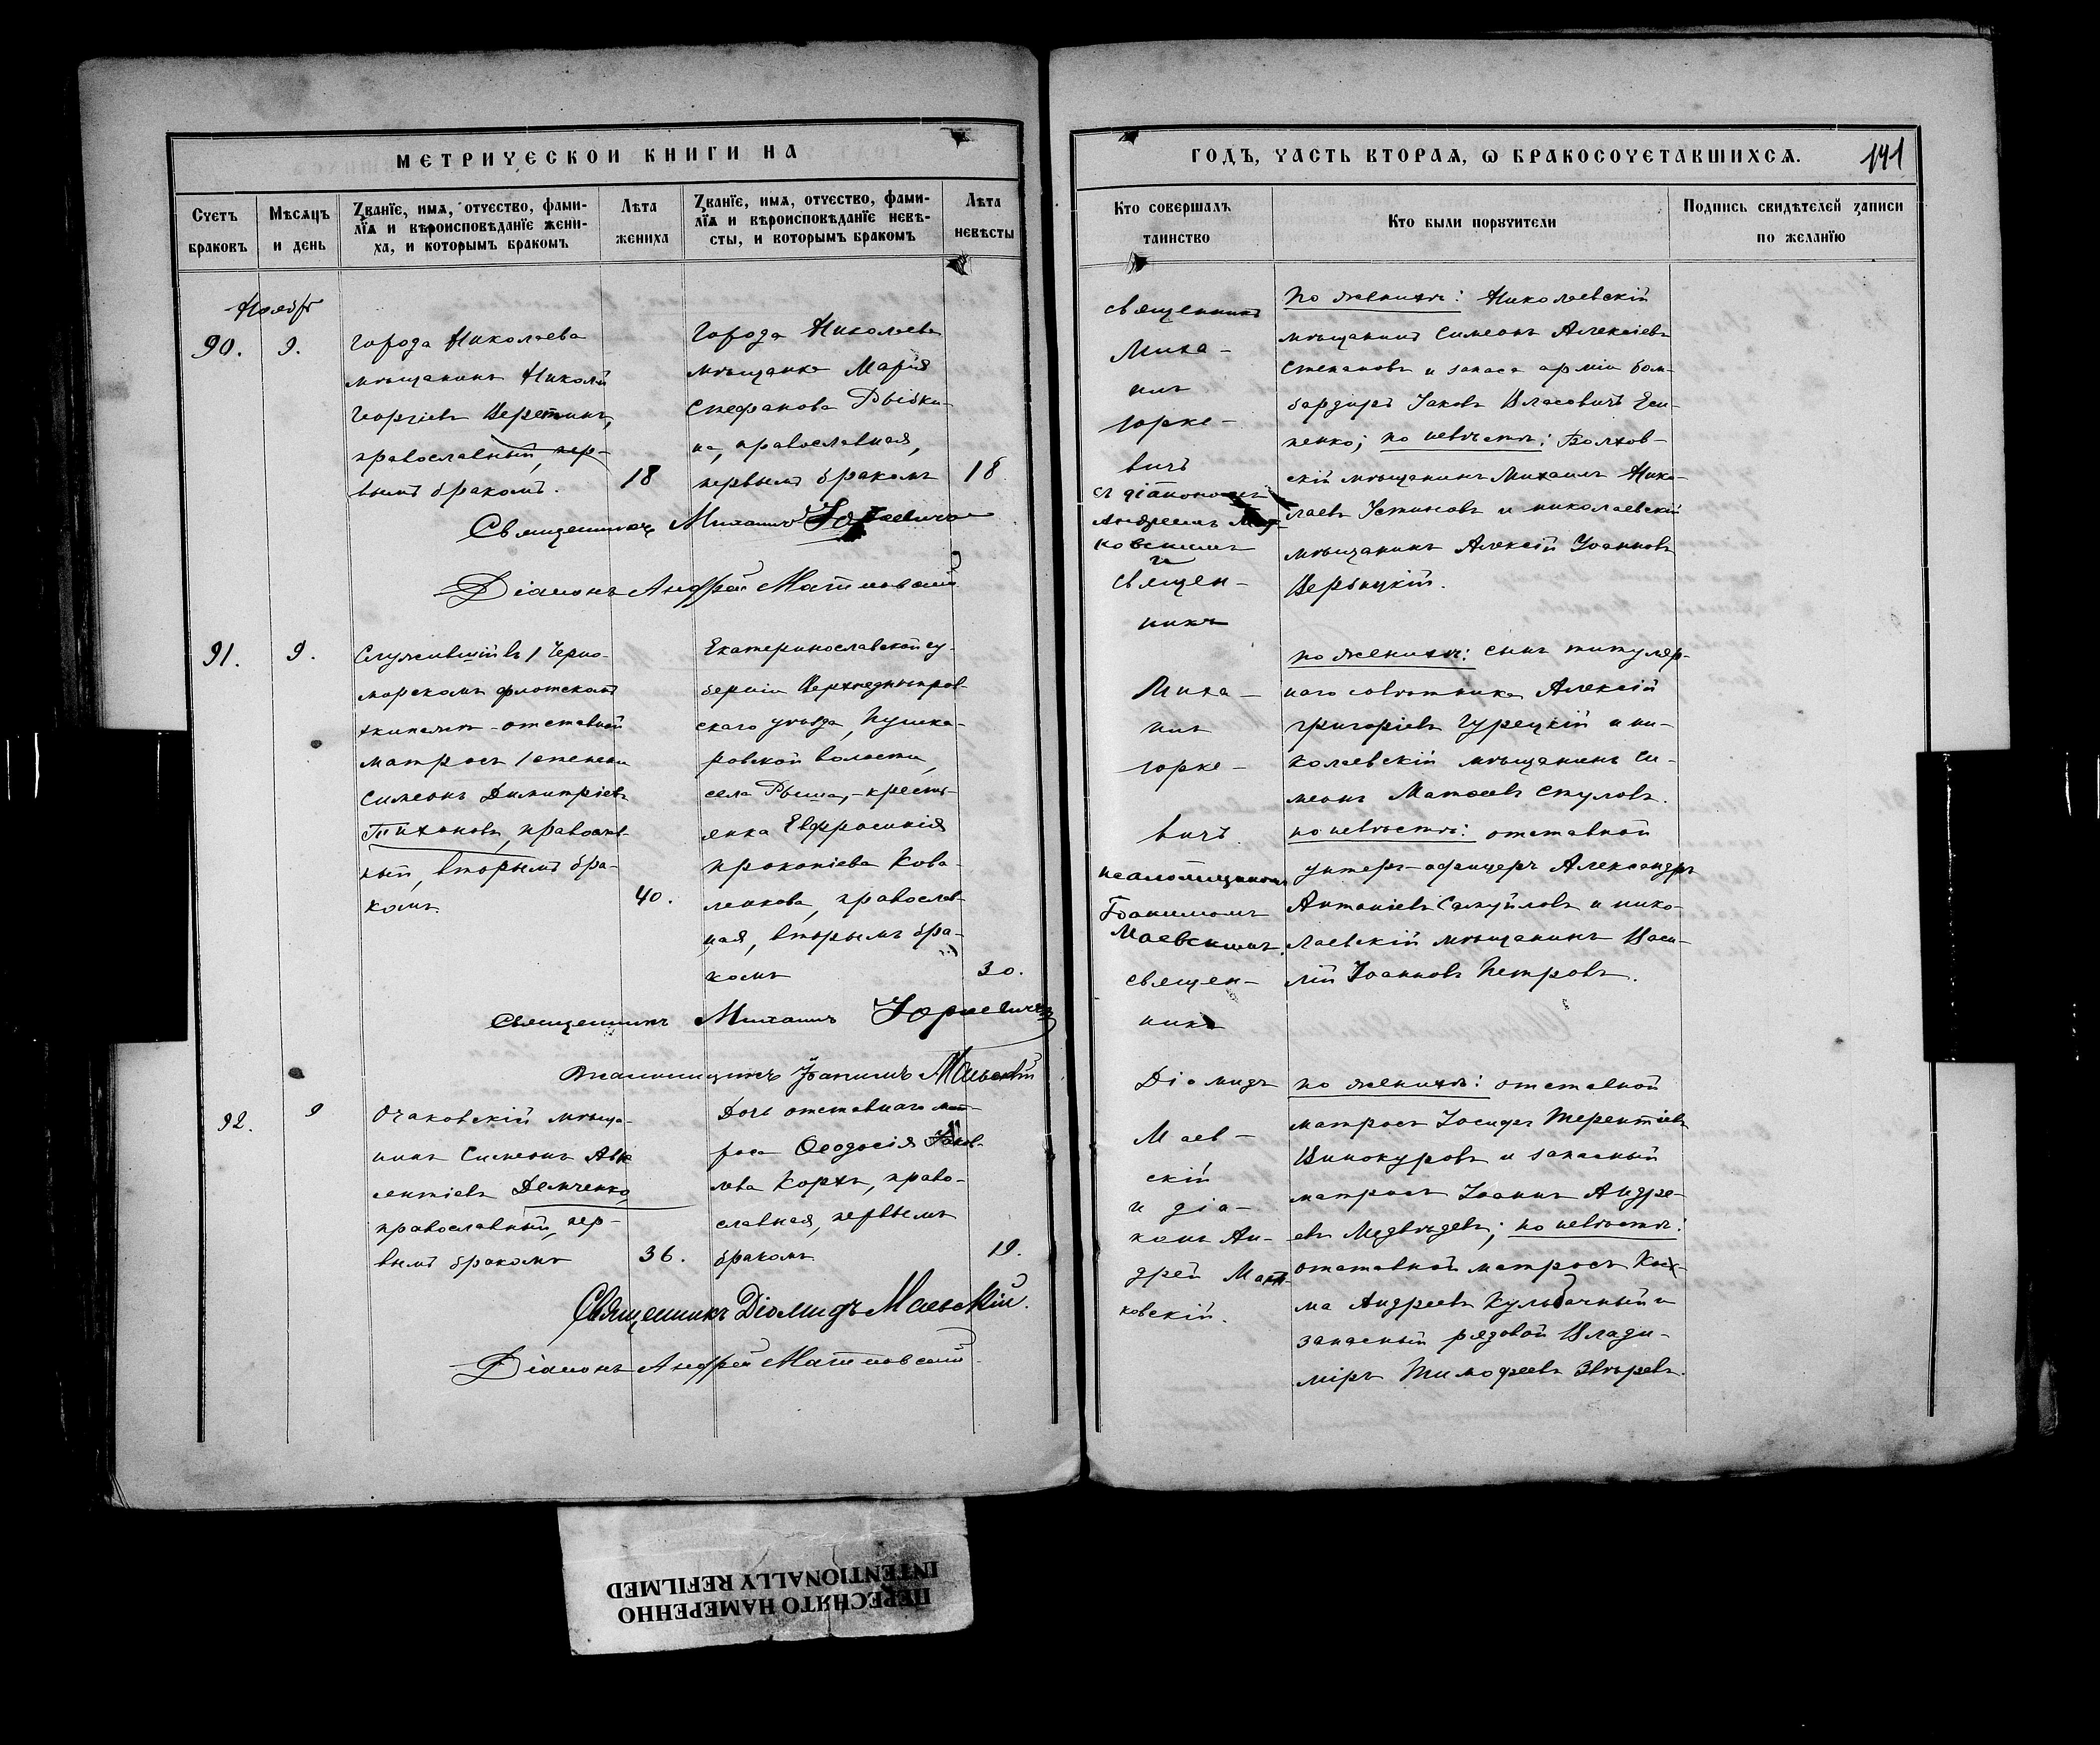 МЕТРИЧЕСКОЙ КНИГИ НА
Счетъ браковъ
Мѣсяцъ и день
Званіе, имя, отчество, фами-
лія и вѣроисповѣданіе жени-
ха, и которымъ бракомъ
Лѣта жениха
Званіе, имя, отчество, фами-
лія и вѣроисповѣданіе невѣ-
сты, и которымъ бракомъ
Лѣта невѣсты
90. 9.
города Николаева
мѣщанинъ Николай
Георгіевъ
православный, пер-
вымъ бракомъ.
18
города Николаева
мѣщанка Марія
Стефанова Рыбки-
на, православная,
первымъ бракомъ
18
Священникъ Михаилъ Юркевичъ
Діаконъ Андрей
91. 9.
Служившій въ 1 Черно-
морскомъ флотскомъ
экипажѣ отставной
матросъ 1 степени
Симеонъ Димитріевъ
Тихоновъ, православ-
ный, вторымъ бра-
комъ.
40.
Екатеринославской гу-
берніи Верхнеднѣпров-
скаго уѣзда, Пушка-
ровской волости,
села крестья-
янка Евфросинія
Прокопіева Кова-
ленкова, православ-
ная, вторымъ бра-
комъ
30.
Священникъ Михаилъ Юркевичъ
Псаломщикъ Іоакимъ Маевскій
92. 9
Очаковскій мѣща-
нинъ Симеонъ Авк-
сентіевъ Демченко,
православный, пер-
вымъ бракомъ
36.
Дочь отставного мат-
роса Ѳеодосія Іаков-
лева Коржъ, право-
славная, первымъ
бракомъ
19.
Священникъ Діомидъ Маевскій.
Діаконъ Андрей
ГОДЪ, ЧАСТЬ ВТОРАЯ, Ѡ БРАКОСОЧЕТАВШИХСЯ.
141
Кто совершалъ таинство
Кто были поручители
Подпись свидѣтелей записи по желанію
Священникъ
Миха-
илъ
Юрке-
вичъ
съ діакономъ
Андреемъ
ковскимъ
По женихѣ: Николаевскій
мѣщанинъ Симеонъ Алексіевъ
Степановъ и запаса арміи бом-
бардиръ Іаковъ Власовичъ Еси-
пенко; по невѣстѣ: Болхов-
скій мѣщанинъ Михаилъ Нико-
лаевъ Устиновъ и николаевскій
мѣщанинъ Алексій Іоанновъ
Вербицкій.
Священ-
никъ
Миха-
илъ
Юрке-
вичъ
псаломщикомъ
Іоакимомъ
Маевскимъ.
по женихѣ: сынъ титуляр-
наго совѣтника Алексій
Григоріевъ Гурецкій и ни-
колаевскій мѣщанинъ Си-
меонъ Матѳеевъ Стуловъ.
по невѣстѣ: отставной
унтеръ-офицеръ Александръ
Антоніевъ Самуйловъ и нико-
лаевскій мѣщанинъ Васи-
лій Іоанновъ Петровъ.
Священ-
никъ
Діомидъ
Маев-
скій
и діа-
конъ Ан-
дрей
ковскій.
по женихѣ: отставной
матросъ Іосифъ Терентіевъ
Винокуровъ и запасный
матросъ Іоаннъ Андре-
евъ Медвѣдевъ; по невѣстѣ:
отставной матросъ Кось-
ма Андреевъ Кульбачный и
запасный рядовой Влади-
міръ Тимофеевъ Звѣревъ.
ПЕРЕСНЯТО НАМЕРЕННО
INTENTIONALLY REFILMED